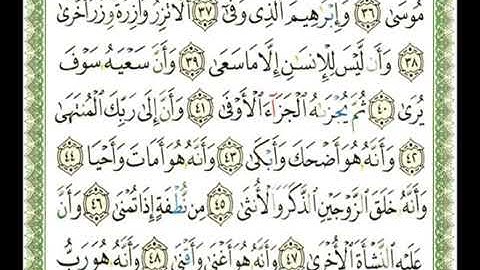 مُوسَىٰ ٣٦ وَإِبْرَٰهِيمَ ٱلَّذِى وَفَّىٰٓ ٣٧ أَلَّا تَزِرُ وَازِرَةٌ وِزْرَ أُخْرَىٰ
٣٨ وَأَن لَّيْسَ لِلْإِنسَٰنِ إِلَّا مَا سَعَىٰ ٣٩ وَأَنَّ سَعْيَهُۥ سَوْفَ
يُرَىٰ ٤٠ ثُمَّ يُجْزَىٰهُ ٱلْجَزَآءَ ٱلْأَوْفَىٰ ٤١ وَأَنَّ إِلَىٰ رَبِّكَ ٱلْمُنتَهَىٰ
٤٢ وَأَنَّهُۥ هُوَ أَضْحَكَ وَأَبْكَىٰ ٤٣ وَأَنَّهُۥ هُوَ أَمَاتَ وَأَحْيَا ٤٤
وَأَنَّهُۥ خَلَقَ ٱلزَّوْجَيْنِ ٱلذَّكَرَ وَٱلْأُنثَىٰ ٤٥ مِن نُّطْفَةٍ إِذَا تُمْنَىٰ ٤٦ وَأَنَّ
عَلَيْهِ ٱلنَّشْأَةَ ٱلْأُخْرَىٰ ٤٧ وَأَنَّهُۥ هُوَ أَغْنَىٰ وَأَقْنَىٰ ٤٨ وَأَنَّهُۥ هُوَ رَبُّ